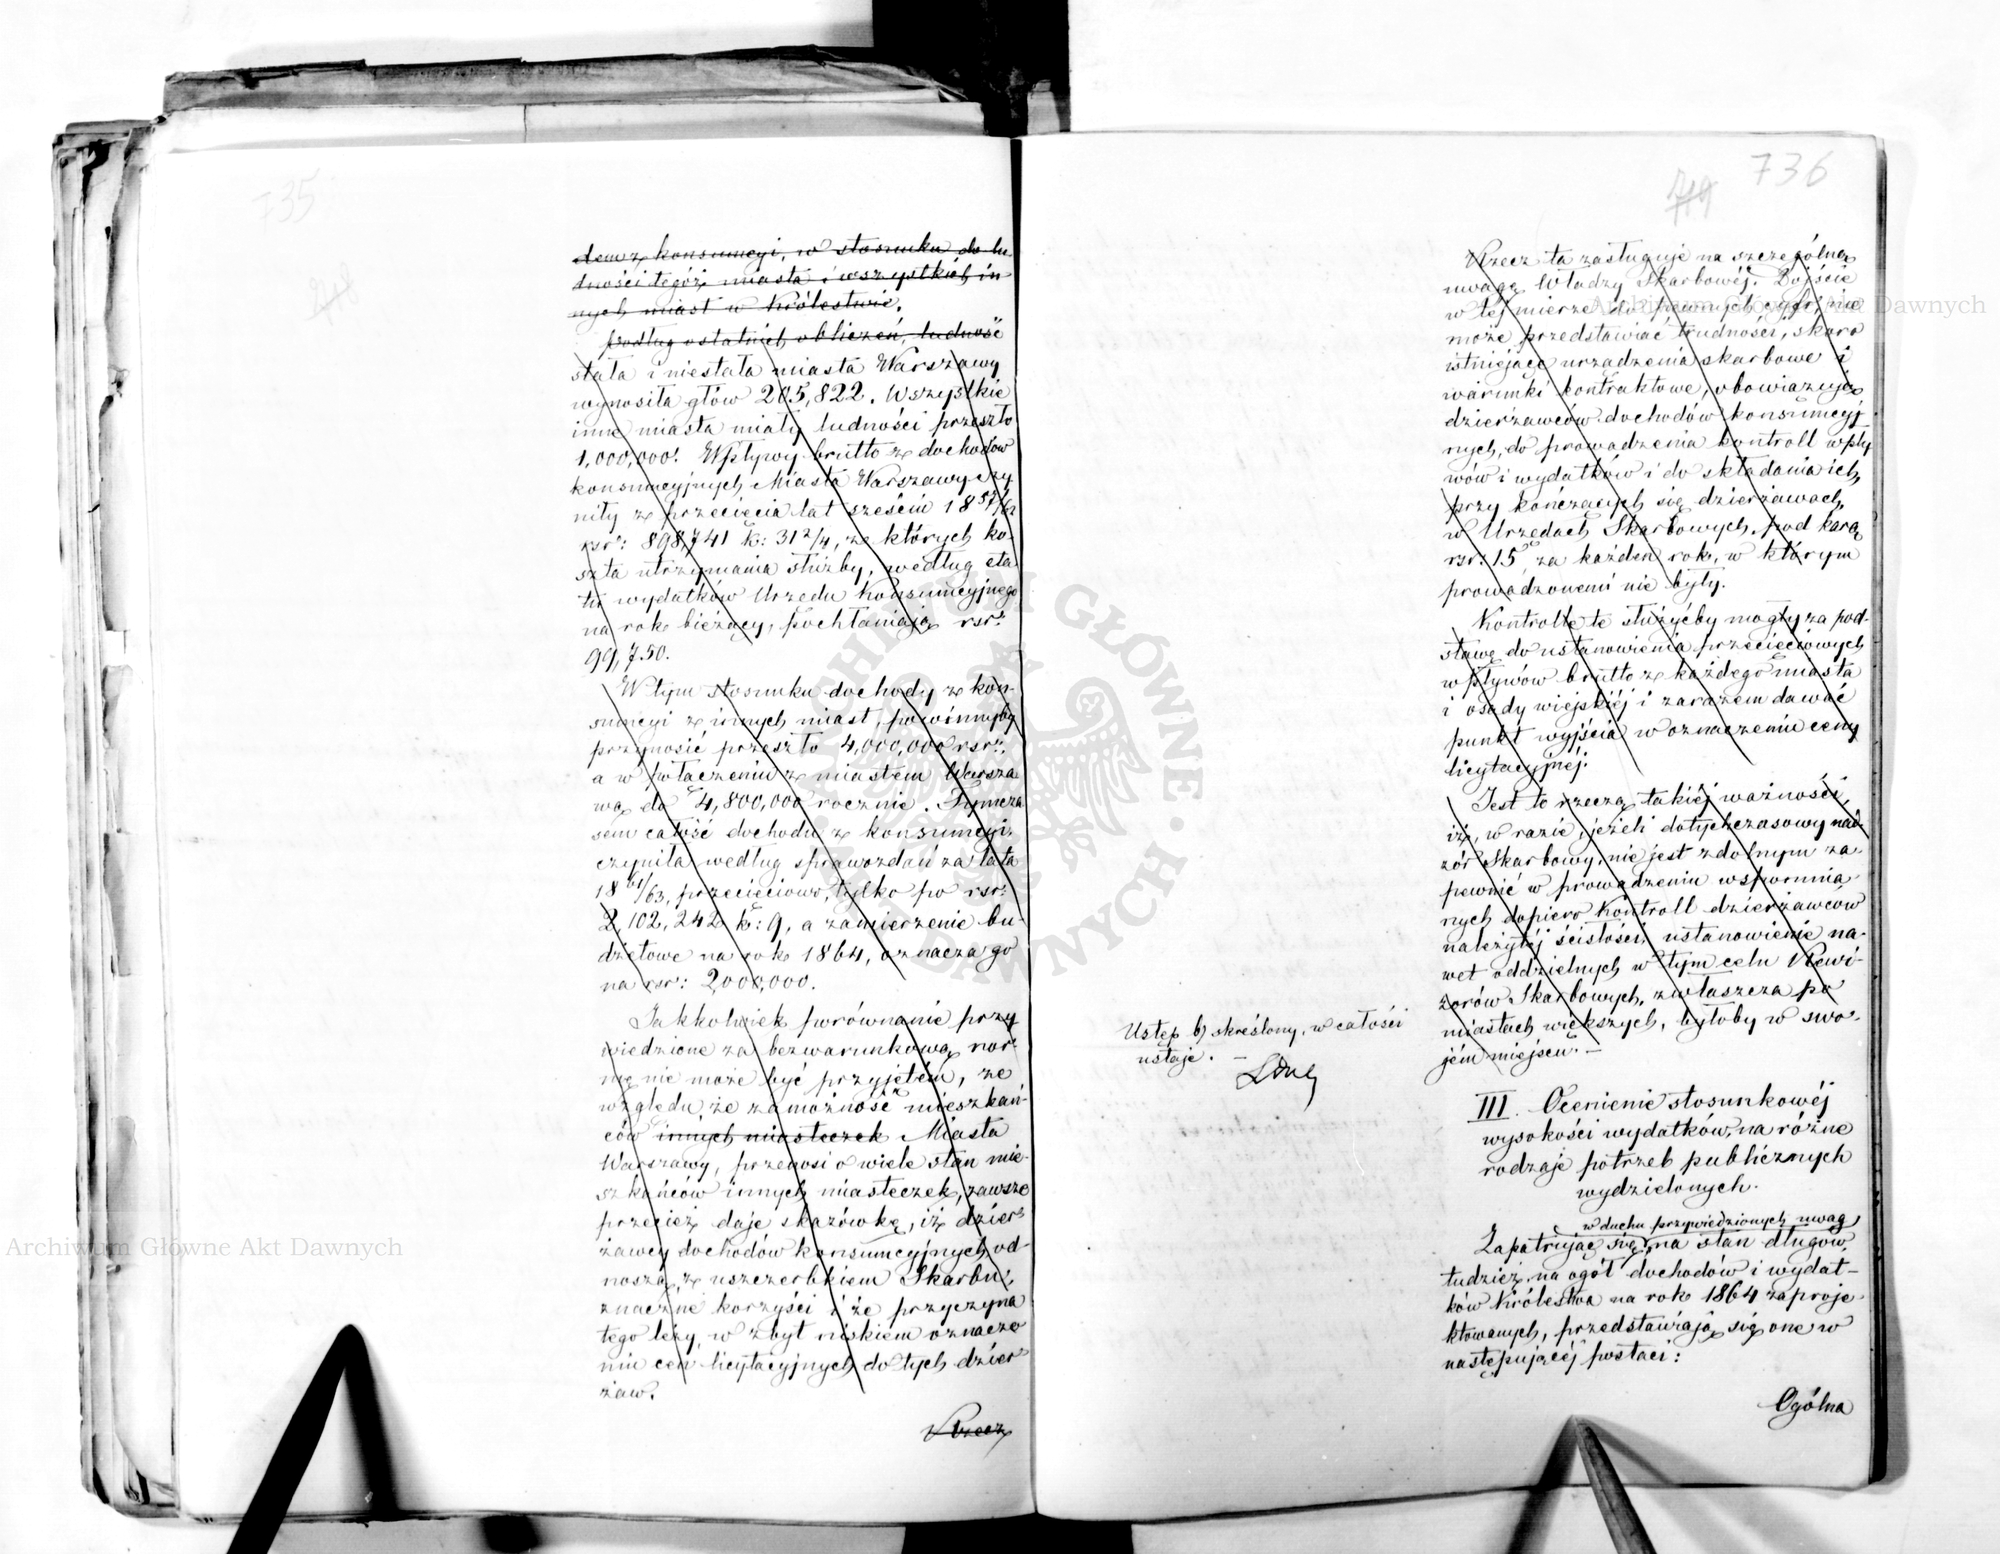 735
dem z konsumcyi, w stosunku do lu-
dności tegóż miasta i wszystkich in-
nych miast w Królestwie.
podług ostatnich obliczeń, ludność
stała i niestała miasta Warszawy
wynosiła głów 205,822. Wszystkie
inne miasta miały ludności przeszło
1,000,000. Wpływy brutto z dochodów
konsumcyjnych Miasta Warszawy czy
niły z przecięcia lat sześciu 18 57/62
rsr: 898,741 k: 31 2/4, ze których ko-
szta utrzymania służby, według eta-
tu wydatków Urzędu Konsumcyjnego
na rok bieżący, pochłaniają rsr:
99,750.
W tym stosunku dochody z kon-
sumcyi z innych miast, powinnyby
przynosić przeszło 4,000,000 rsr:,
a w połączeniu z miastem Warsza
wą do 4,800,000 rocznie. Tymcza
sem całość dochodu z konsumcyi
czyniła według sprawozdań za lata
18 61/63, przecięciowo, tylko po rsr:
2,102,242 k: 9, a zamierzenie bu-
dżetowe na rok 1864, oznacza go
na rsr: 2,000,000.
Jakkolwiek porównanie przy
wiedzione za bezwarunkową nor-
mę nie może być przyjętem, ze
względu, że zamożność mieszkań-
ców innych miasteczek Miasta
Warszawy, przenosi o wiele stan mie-
szkańców innych miasteczek, zawsze
przecież daje skazówkę, iż dzier-
żawcy dochodów konsumcyjnych od-
noszą, z uszczerbkiem Skarbu,
znaczne korzyści i że przyczyna
tego leży w zbyt niskiem oznacze
niu cen licytacyjnych do tych dzier
żaw.
Rzecz
736
719
Rzecz ta zasługuje na szczególną
uwagę Władzy Skarbowéj. Dojście
w téj mierze do pewnych cyfr, nie
może przedstawiać trudności, skoro
istniejące urządzenia skarbowe i
warunki kontraktowe, obowiązują
dzierżawców dochodów konsumcyj
nych, do prowadzenia kontroll wpły
wów i wydatków i do składania ich,
przy kończących się dzierżawach,
w Urzędach Skarbowych, pod karą
rsr: 15 za każden rok, w którym
prowadzonemi nie były.
Kontrolle te służyćby mogły za pod-
stawę do ustanowienia przecięciowych
wpływów brutto z każdego miasta
i osady wiejskiéj i zarazem dawać
punkt wyjścia w oznaczeniu ceny
licytacyjnéj.
Jest to rzeczą takiéj ważności,
iż, w razie, jeżeli dotychczasowy nad-
zór Skarbowy, nie jest zdolnym za-
pewnić w prowadzeniu wspomnia-
nych dopiero Kontroll dzierżawców
należytéj ścisłości, ustanowienie na-
wet oddzielnych w tym celu Rewi-
zorów Skarbowych, zwłaszcza po
miastach większych, byłoby w swo-
jém miejscu. –
Ustęp b) skreślony, w całości
ustaje. –
III. Ocenienie stosunkowéj
wysokości wydatków, na różne
rodzaje potrzeb publicznych
wydzielonych.
w duchu przywiedzionych uwag
Zapatrując się na stan długów,
tudzież na ogół dochodów i wydat-
ków Królestwa na rok 1864 zaproje
ktowanych, przedstawiają się one w
następującéj postaci:
Ogólna
Archiwum Główne Akt Dawnych
Archiwum Główne Akt Dawnych
ARCHIWUM GŁÓWNE AKT DAWNYCH